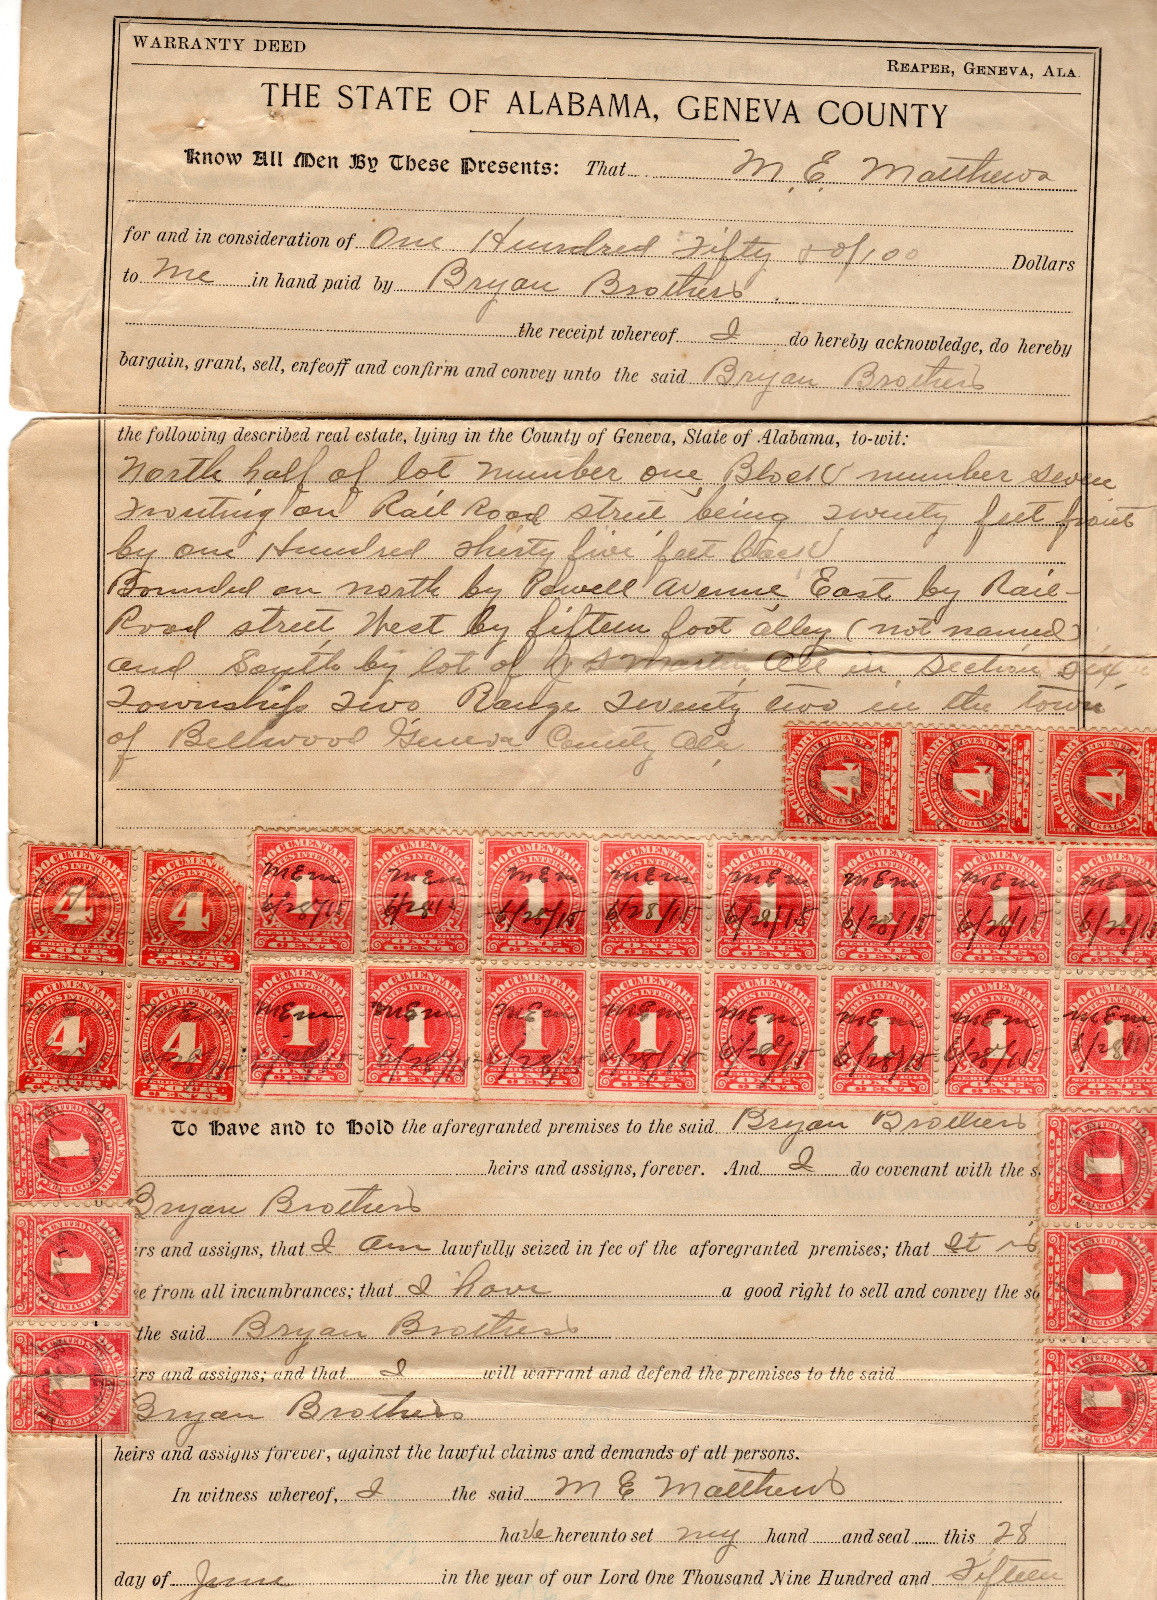 WARRANTY DEED
REAPER, GENEVA, ALA.
THE STATE OF ALABAMA, GENEVA COUNTY
Know All Men By These Presents: That M. E. Matthews
for and in consideration of One Hundred Fifty 00/100 Dollars
to me in hand paid by Bryan Brothers
the receipt whereof I do hereby acknowledge, do hereby
bargain, grant, sell, enfeoff and confirm and convey unto the said Bryan Brothers
the following described real estate, lying in the County of Geneva, State of Alabama, to-wit:
North half of lot number one Block number seven
Fronting on Rail Road street being Twenty feet front
by one Hundred thirty five feet back
Bounded on north by Powell Avenue East by Rail-
Road street West by fifteen foot alley (not named)
and South by lot of J S Martin, All in section six
Township Two Range Twenty two in the town
of Bellwood Geneva County Ala.
4 4 4
DOCUMENTARY
4 4
1 1 1 1 1 1 1 1
MEM MEM MEM MEM MEM MEM MEM MEM
6/28/15 6/28/15 6/28/15 6/28/15 6/28/15 6/28/15 6/28/15 6/28/15
4 4
1 1 1 1 1 1 1 1
MEM MEM MEM MEM MEM MEM MEM MEM
6/28/15 6/28/15 6/28/15 6/28/15 6/28/15 6/28/15 6/28/15 6/28/15
To Have and to Hold the aforegranted premises to the said Bryan Brothers
heirs and assigns, forever. And I do covenant with the s
Bryan Brothers
irs and assigns, that I am lawfully seized in fee of the aforegranted premises; that It is
e from all incumbrances; that I have a good right to sell and convey the sa
the said Bryan Brothers
irs and assigns; and that I will warrant and defend the premises to the said
Bryan Brothers
heirs and assigns forever, against the lawful claims and demands of all persons.
1 1 1
1 1 1
In witness whereof, I the said M E Matthews
have hereunto set my hand and seal this 28
day of June in the year of our Lord One Thousand Nine Hundred and Fifteen